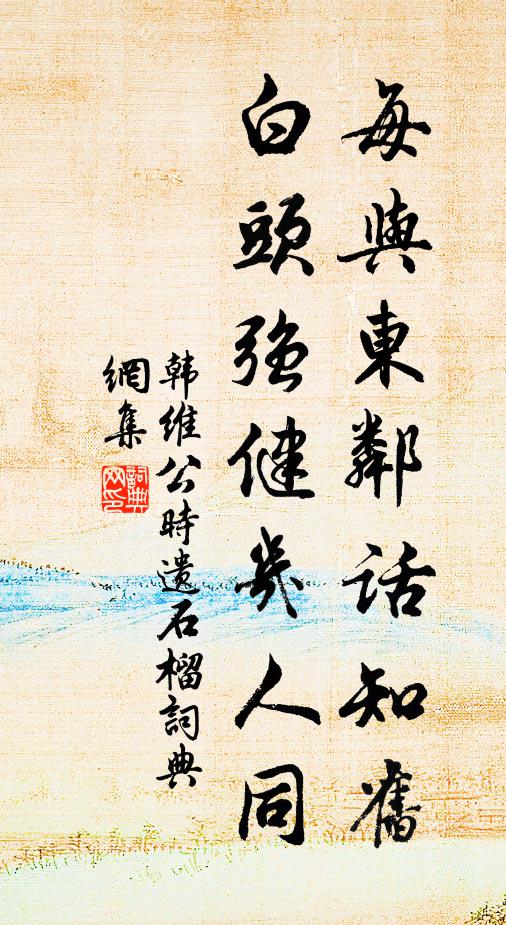 每與東鄰話知舊
白頭強健幾人同
韩維公時遺石榴詞典
網集
詞典
网印